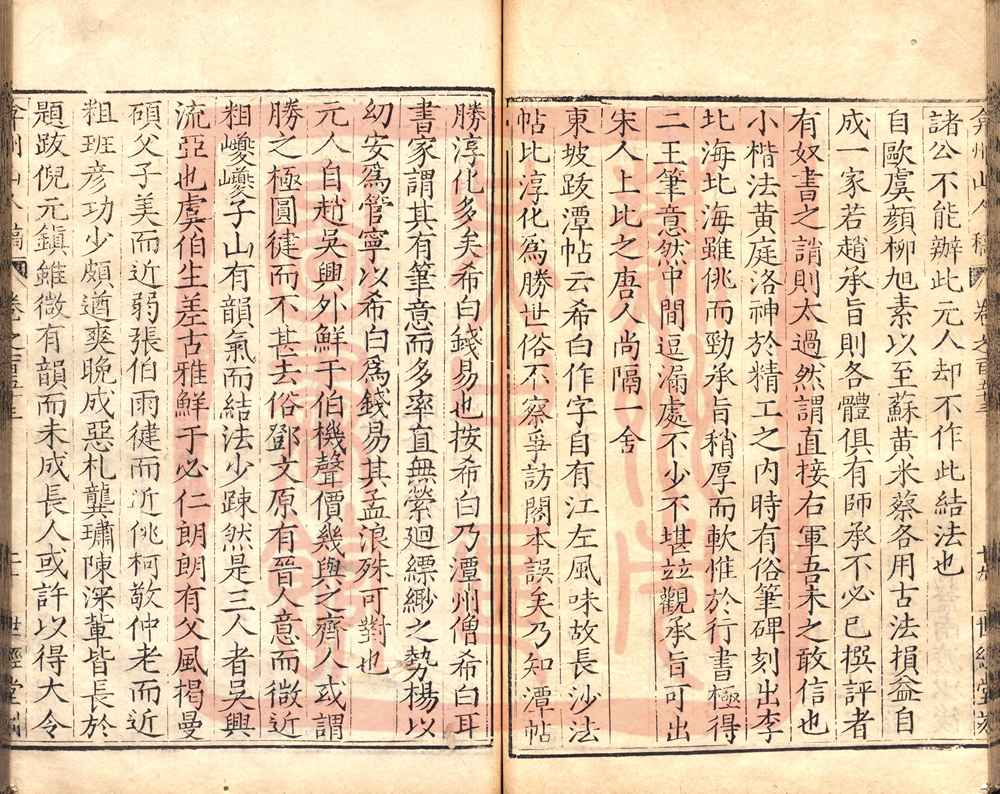 弇州山人稿 卷之百五十三 世經堂刻
諸公不能辦此元人却不作此結法也
自歐虞顔柳旭素以至蘇黄米蔡各用古法損益自
成一家若趙承旨則各體俱有師承不必已撰評者
有奴書之誚則太過然謂直接右軍吾未之敢信也
小楷法黄庭洛神於精工之内時有俗筆碑刻出李
北海北海雖佻而勁承旨稍厚而軟惟於行書極得
二王筆意然中間逗漏處不少不堪竝觀承旨可出
宋人上比之唐人尚隔一舍
東坡跋潭帖云希白作字自有江左風味故長沙法
帖比淳化為勝世俗不察爭訪閣本誤矣乃知潭帖
勝淳化多矣希白錢易也按希白乃潭州僧希白耳
書家謂其有筆意而多率直無縈迴縹緲之勢楊以
幼安為管寧以希白為錢易其孟浪殊可對也
元人自趙吳興外鮮于伯機聲價幾與之齊人或謂
勝之極圓健而不甚去俗鄧文原有晉人意而微近
粗巙巙子山有韻氣而結法少踈然是三人者吳興
流亞也虞伯生差古雅鮮于必仁朗朗有父風揭曼
碩父子美而近弱張伯雨健而近佻柯敬仲老而近
粗班彦功少頗遒爽晚成惡札龔璛陳深軰皆長於
題跋倪元鎮雖微有韻而未成長人或許以得大令
弇州山人稿 卷之百五十三 世經堂刻